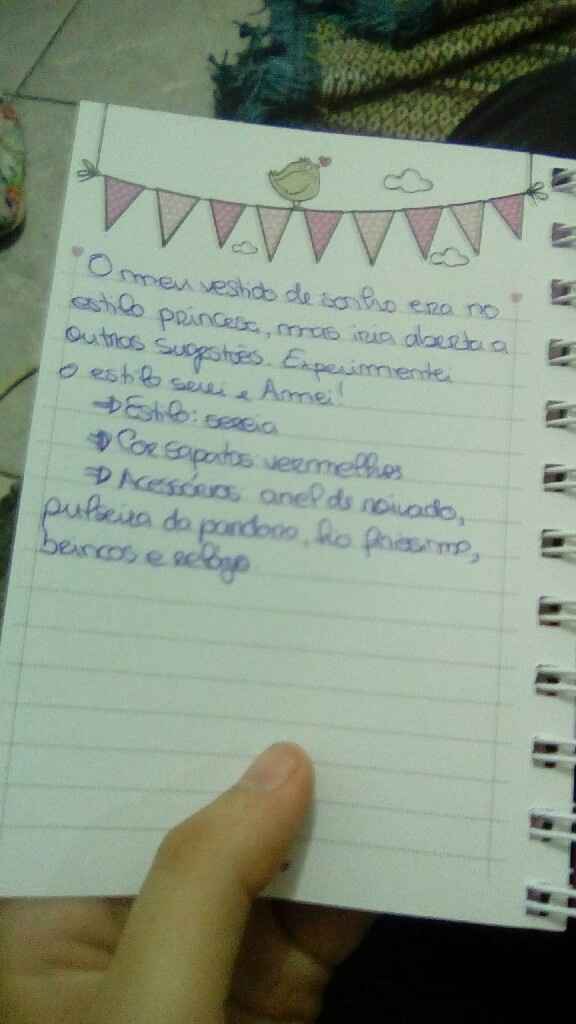 O meu vestido de sonho era no
estilo princesa, mas ia aberta a
outras sugestões. Experimentei
o estilo serei e Amei!
⇒ Estilo: sereia
⇒ Cor sapatos vermelhos
⇒ Acessórios anel de noivado,
pulseira da pandora, fio finissimo,
brincos e relógio